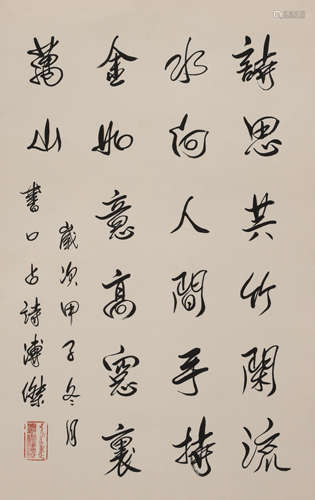 詩思共竹閑流
水向人間手
金如意高窗裏
萬山
歲次甲子冬月
書口占詩溥傑